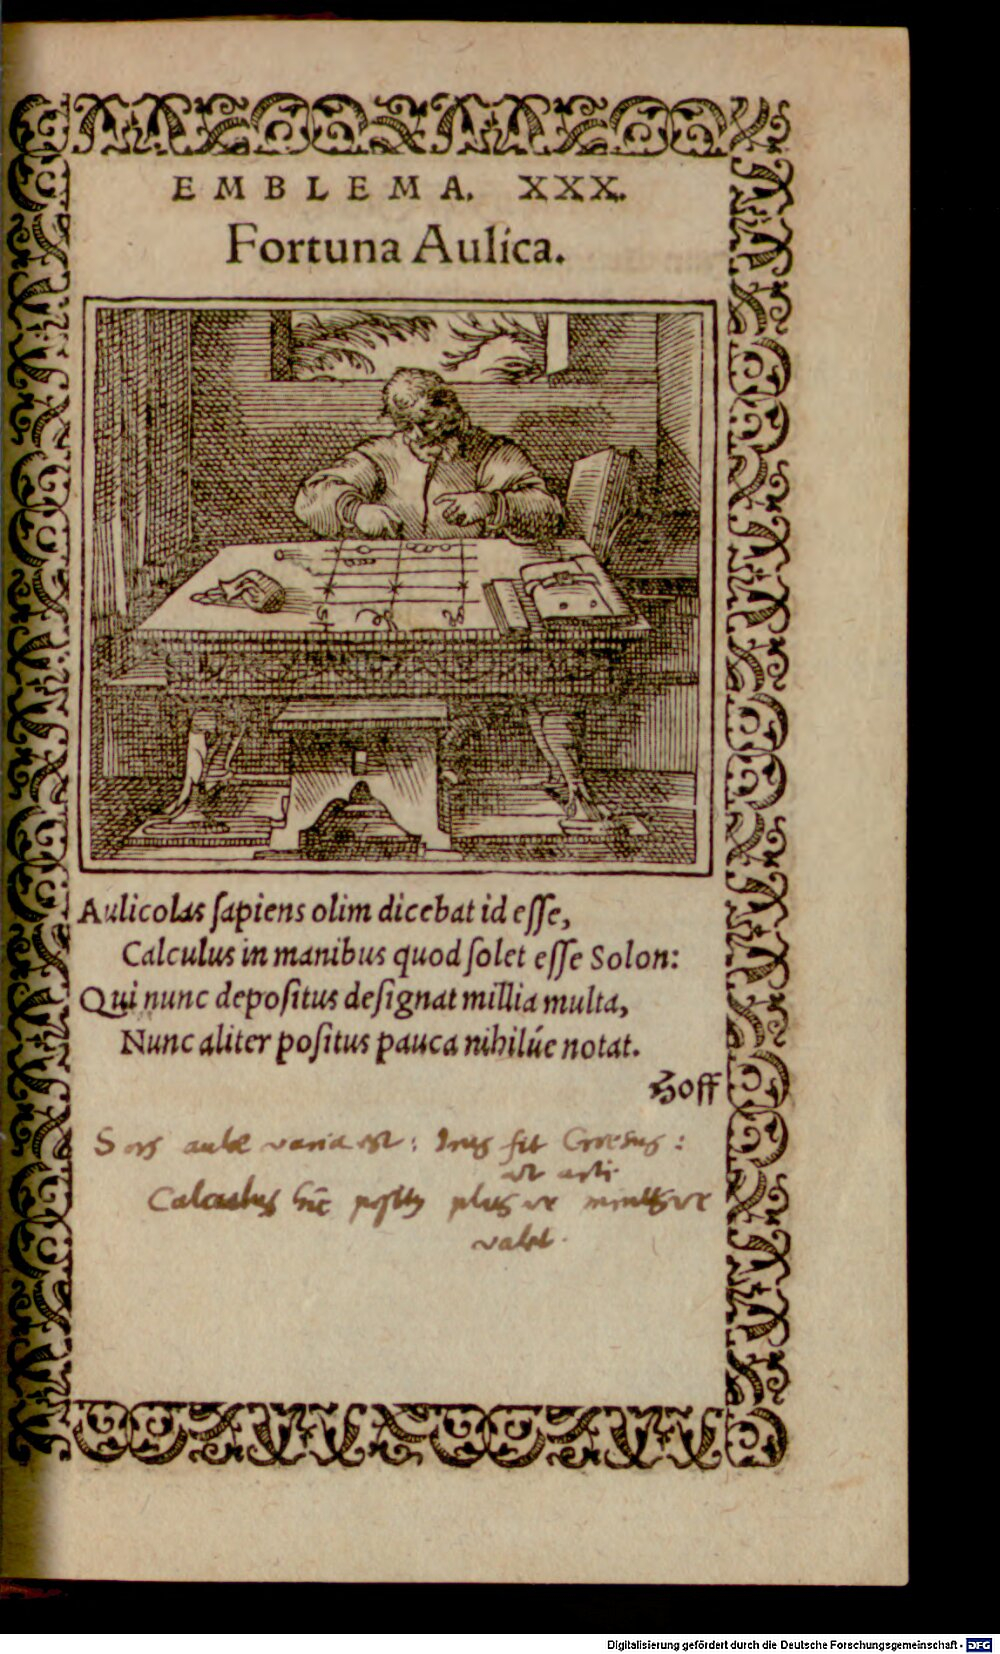 EMBLEMA. XXX.
Fortuna Aulica.
Aulicolas ſapiens olim dicebat id eſſe,
Calculus in manibus quod ſolet eſſe Solon:
Qui nunc depoſitus deſignat millia multa,
Nunc aliter poſitus pauca nihilúe notat.
Hoff
Sors aulae varia est: Irus fit Croesus:
ut
Calculus hic plus ve minus ve
valet.
Digitalisierung gefördert durch die Deutsche Forschungsgemeinschaft - DFG